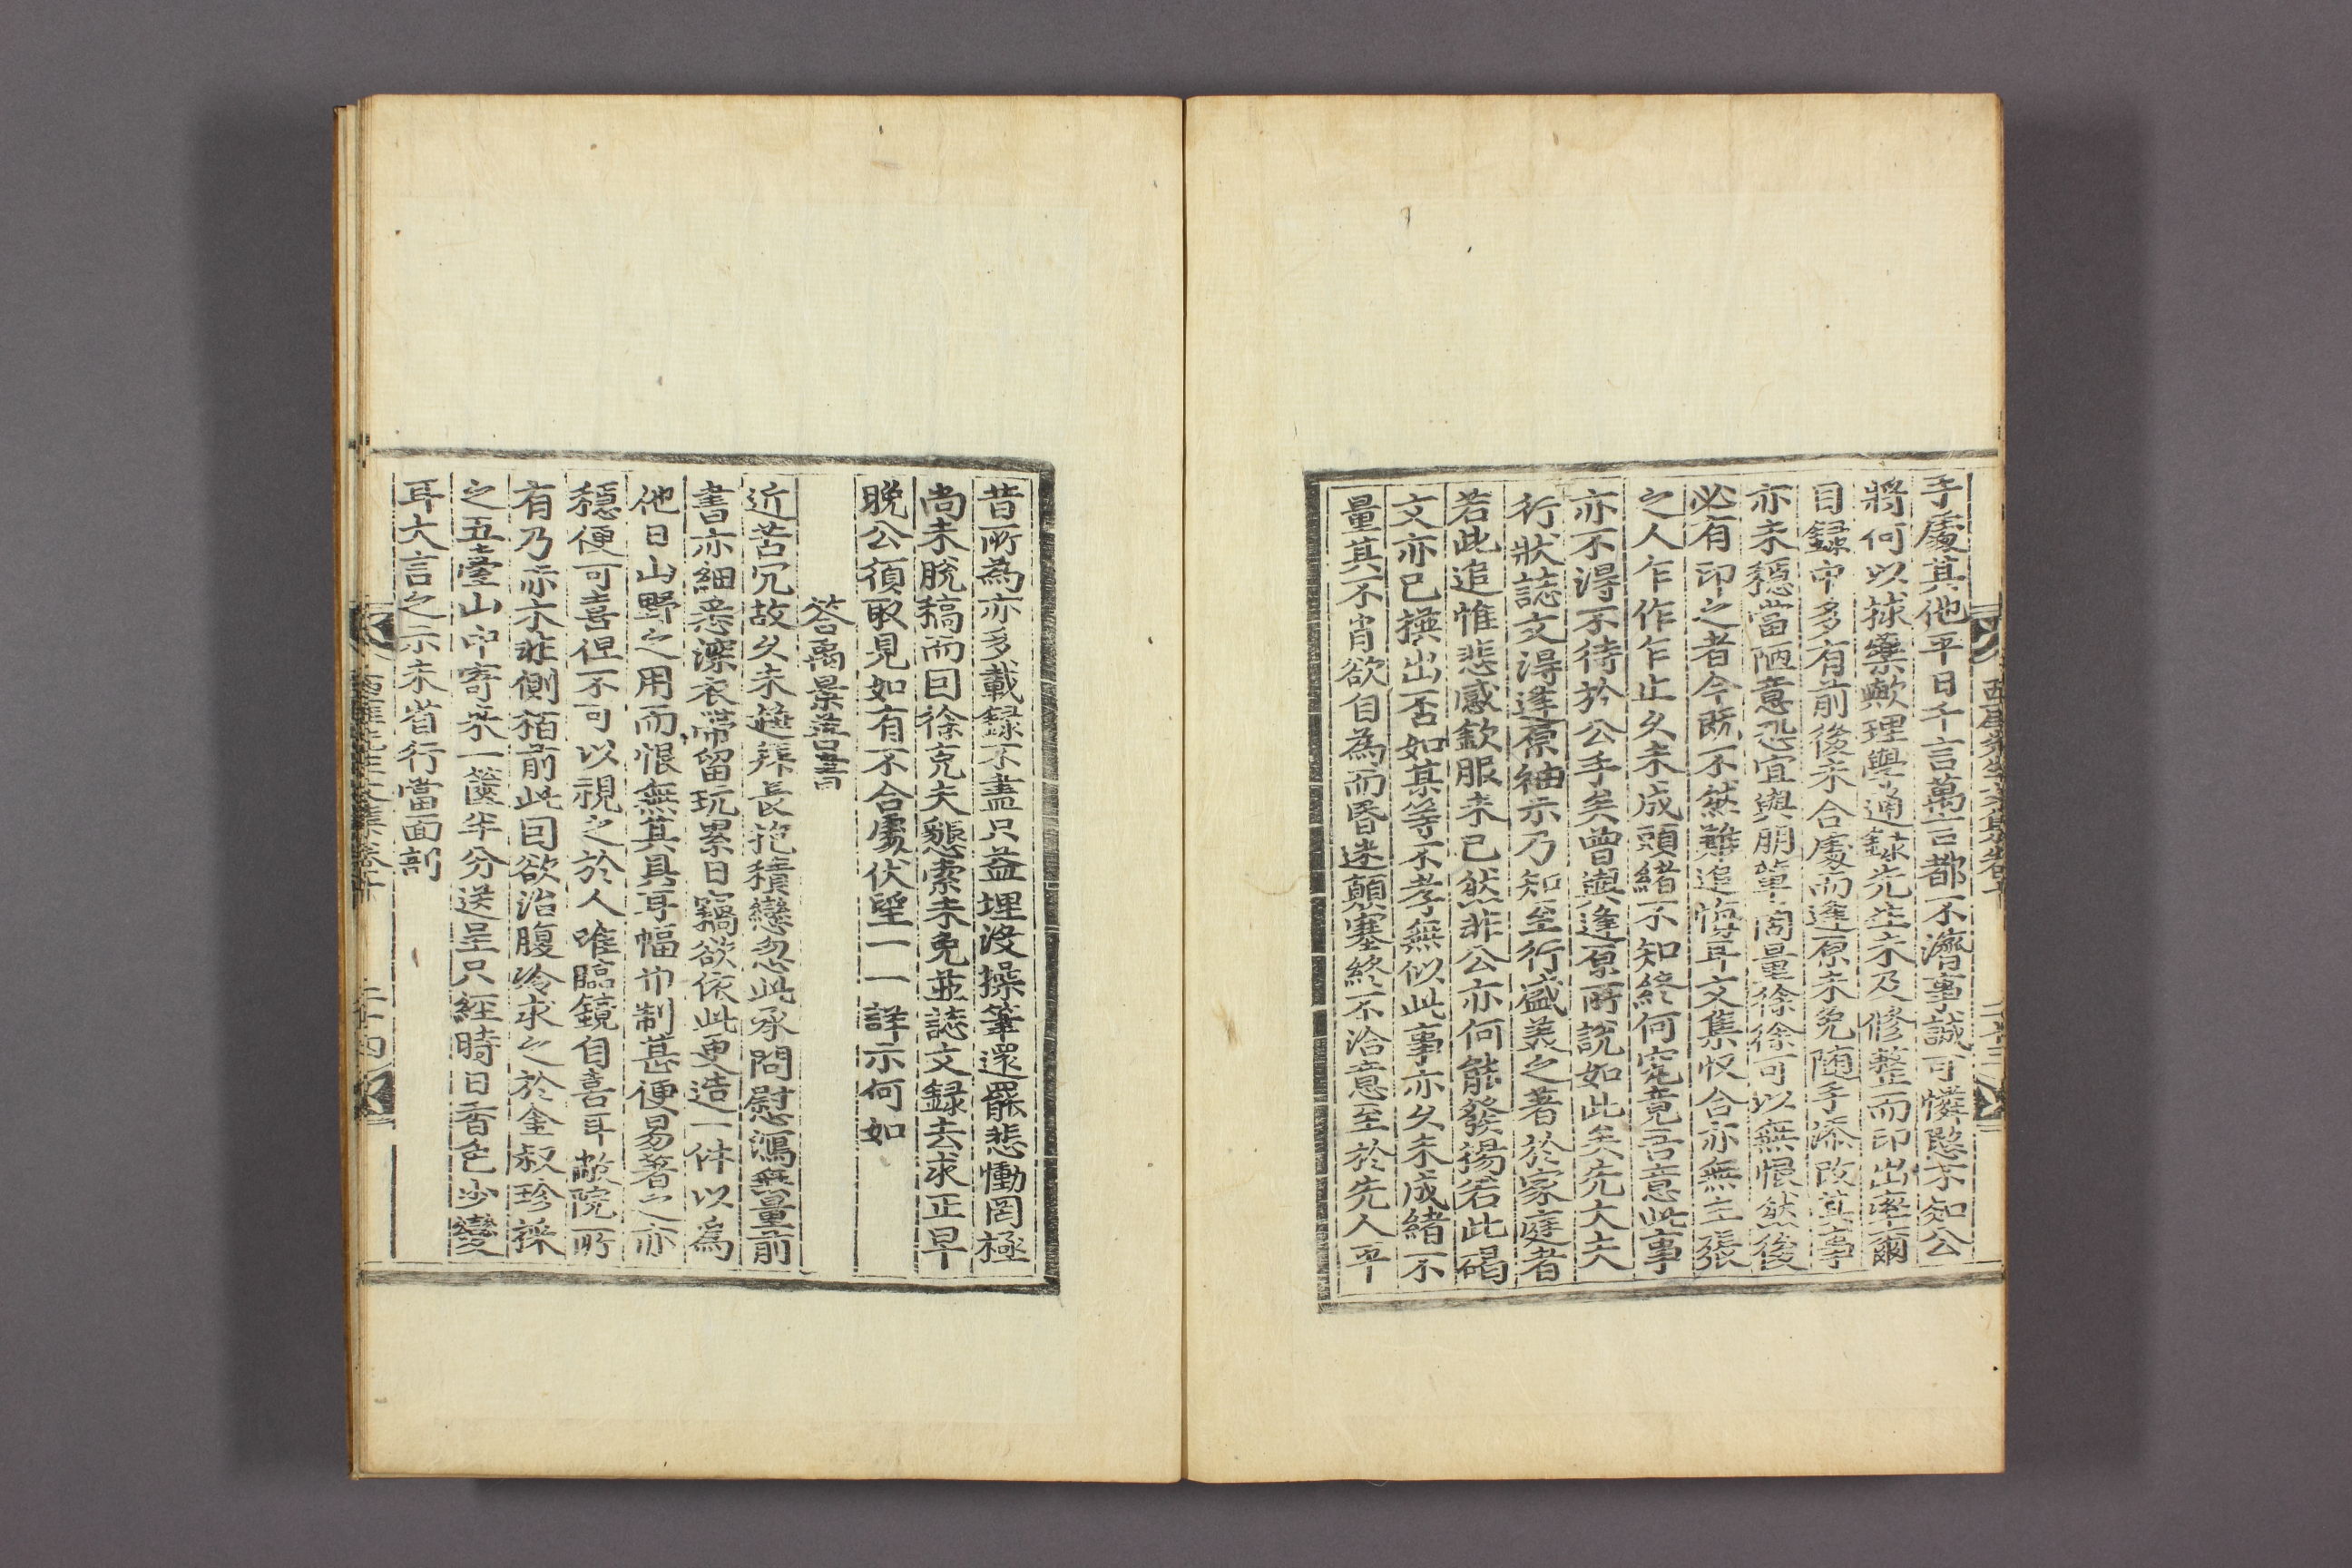 手處其他平日千言萬言都不濟事誠可憐愍不知公
將何以捄藥歟理學通錄先生未及修整而印出率爾
目錄中多有前後未合處而逢原未免随手添改其事
亦未穩當陋意恐宜與朋輩商量徐徐可以無恨然後
必有印之者今旣不然難追悔耳文集収合亦無主張
之人乍作乍止久未成頭緒不知終何究竟吾意此事
亦不淂不待於公手矣曾與逢原所說如此矣先大夫
行狀誌文淂逢原袖示乃知至行盛美之著於家庭者
若此追惟悲感欽服未已然非公亦何能發揚若此碣
文亦已撰出否如某等不孝無似此事亦久未成緒不
量其不肖欲自為而昏迷顛塞終不洽意至於先人平
昔所為亦多載録不盡只益埋沒操筆還罷悲慟罔極
尚未脫稿而回徐克夫懇索未免並誌文録去求正早
晩公須取見如有不合處伏望一一詳示何如
答禹景善書
近苦冗故久未趍拜長抱積戀忽此承問慰瀉無量前
書亦細悉深衣帶留玩累日竊欲依此更造一件以爲
他日山野之用而恨無其具耳幅巾制甚便易著之亦
穩便可喜但不可以視之於人唯臨鏡自喜耳敝院所
有乃赤木非側栢前此回欲治腹冷求之於金叔珍採
之五臺山中寄來一篋半分送呈只經時日香色少變
耳大言之示未省行當面訃
西厓先生文集卷十 二十三
西厓先生文集卷十 二十四